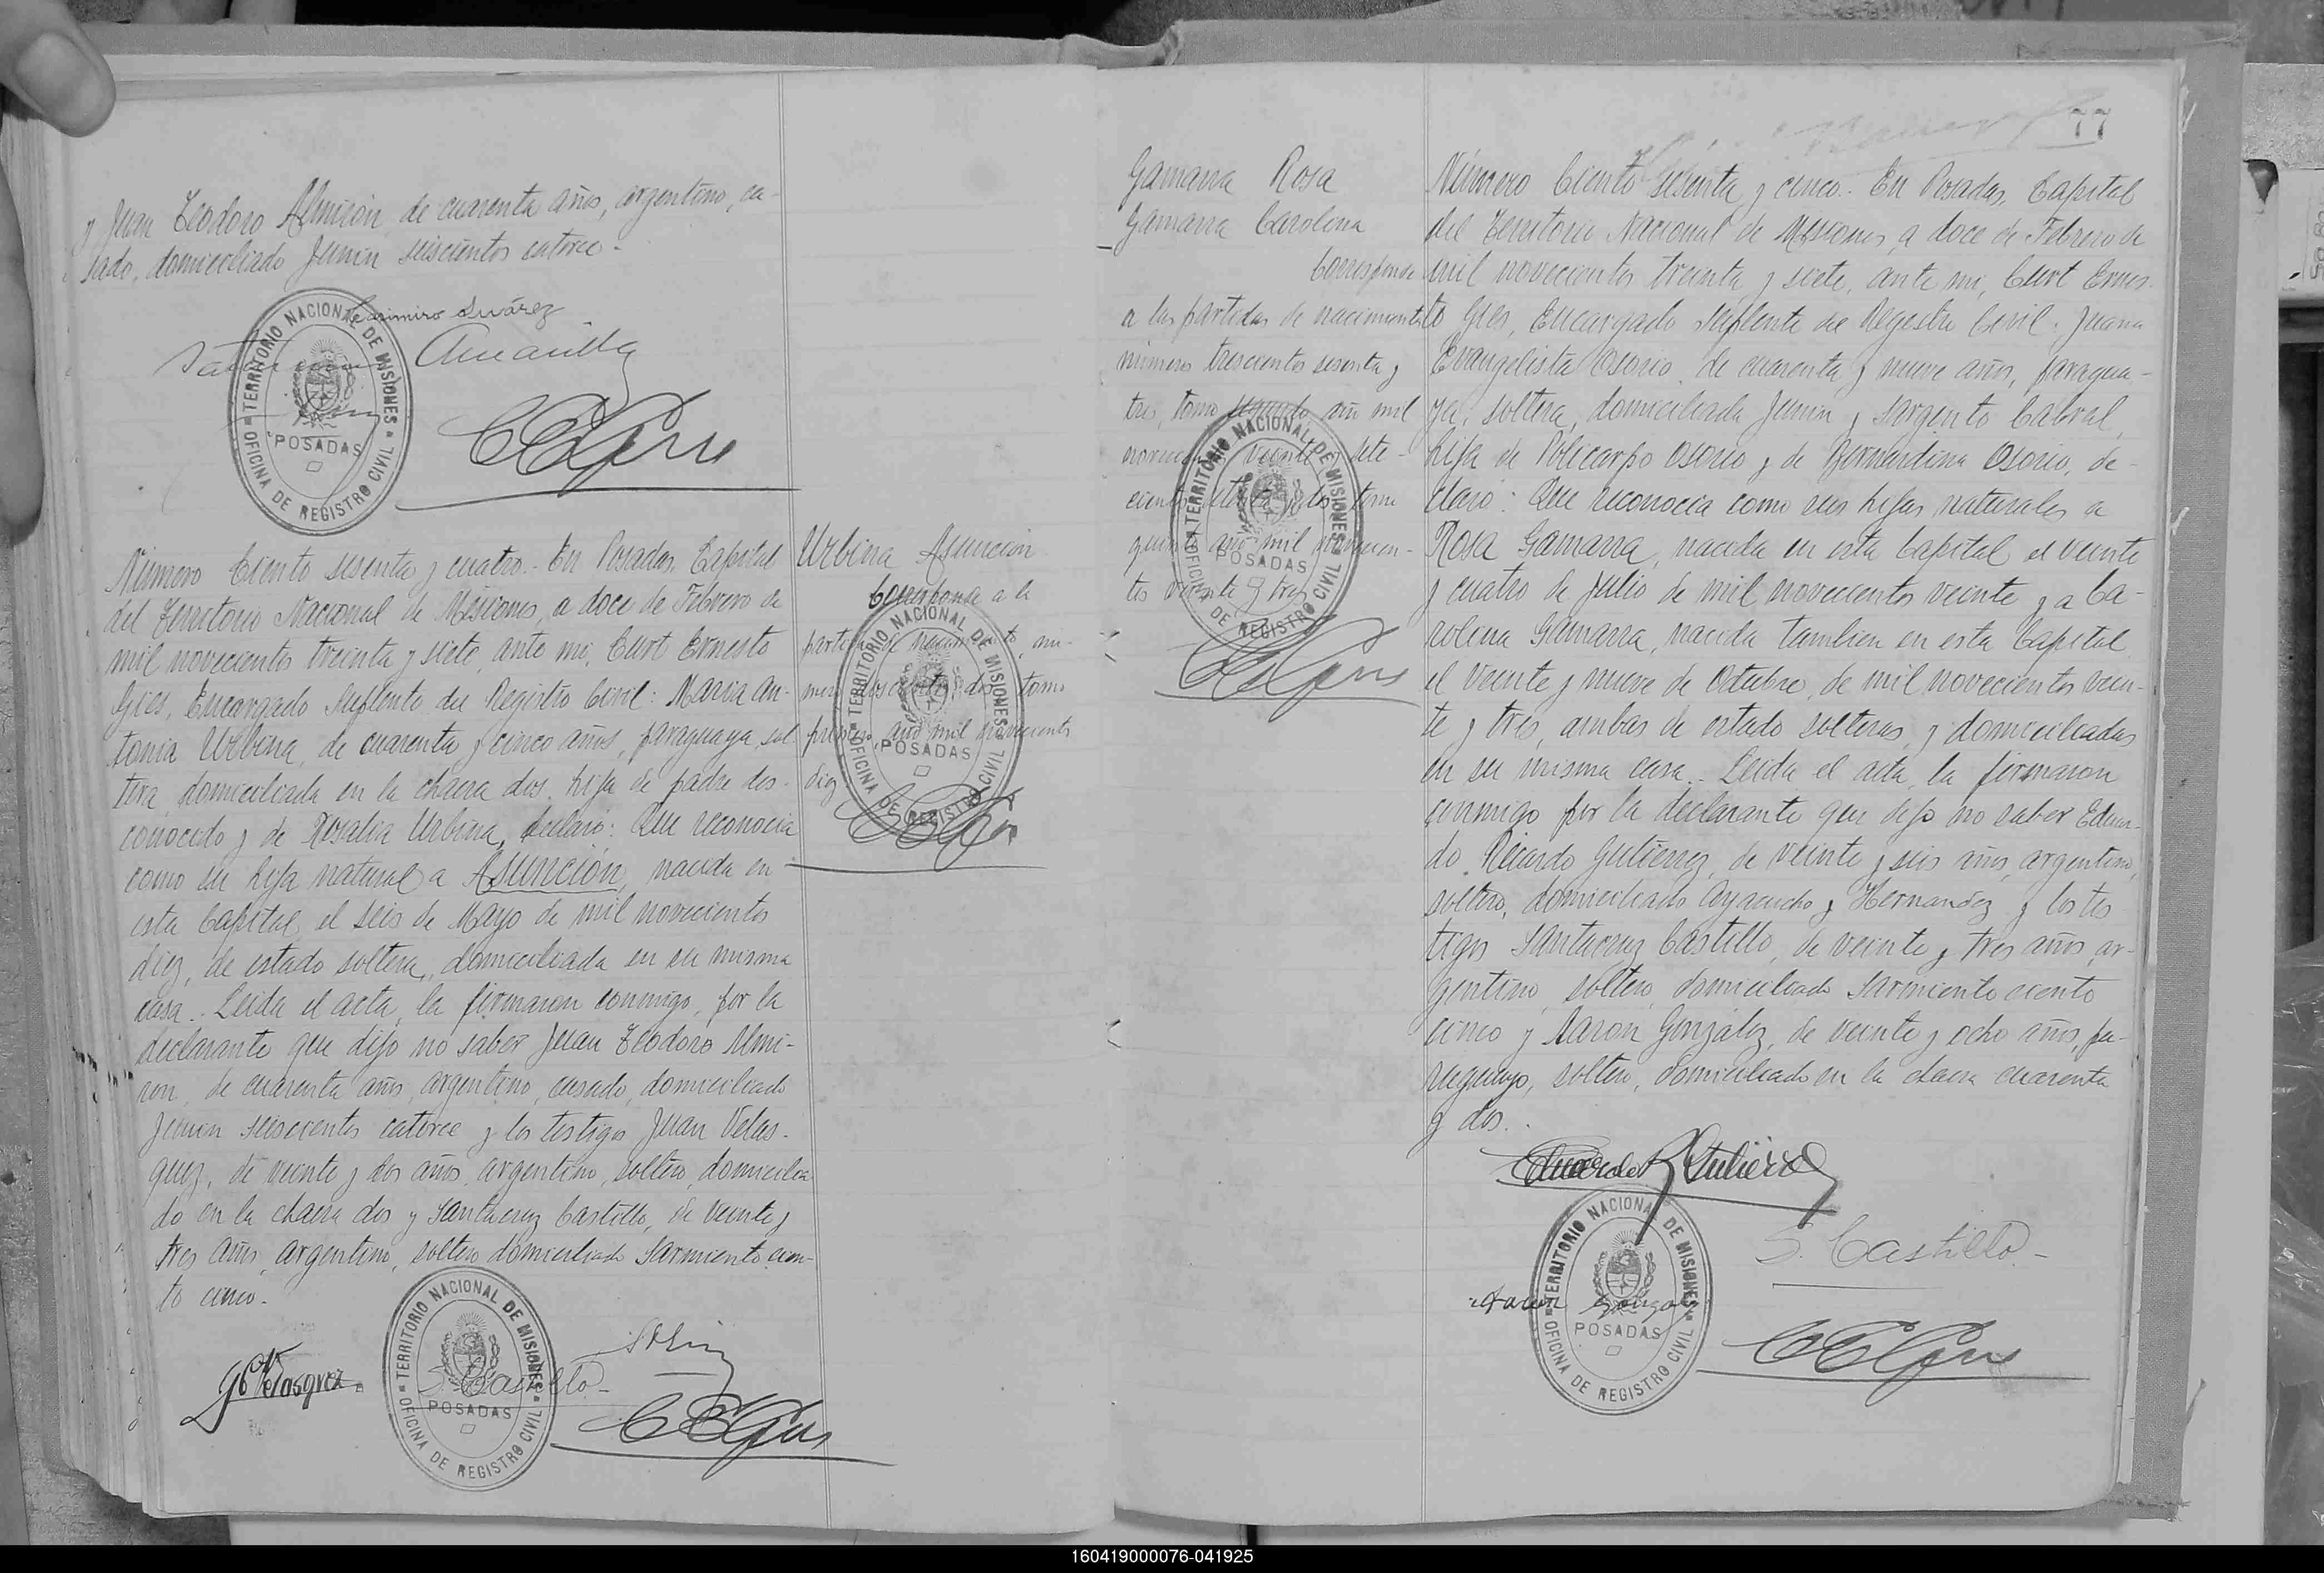 y Juan Teodoro Almirón, de cuarenta años, argentino, ca-
sado, domiciliado Junin seiscientos catorce.-
Casimiro Suárez
Amarilla
TERRITORIO NACIONAL DE MISIONES
POSADAS
OFICINA DE REGISTRO CIVIL
Número Ciento sesenta y cuatro.- En Posadas, Capital
del Territorio Nacional de Misiones, a doce de Febrero de
mil novecientos treinta y siete, ante mi, Curt Ernesto
Gies, Encargado Suplente del Registro Civil: Maria An-
tonia Urbina, de cuarenta y cinco años, paraguaya, sol
tera, domiciliada en la chacra dos, hija de padre des-
conocido y de Rosalia Urbina, declaró: Que reconocia
como su hija natural a Asunción, nacida en
esta Capital el seis de Mayo de mil novecientos
diez, de estado soltera, domiciliada en su misma
casa.- Leida el acta, la firmaron conmigo, por la
declarante que dijo no saber Juan Teodoro Almi-
ron, de cuarenta años, argentino, casado, domiciliado
Junin seiscientos catorce y los testigos Juan Velas-
quez, de veinte y dos años, argentino, soltero, domicilia
do en la chacra dos y Santacruz Castillo, de veinte y
tres años, argentino, soltero domiciliado Sarmiento cien-
to cinco.-
Urbina Asunción
Corresponde a la
partida de nacimiento, nú-
mero dos tomo
primero, año mil novecientos
diez
TERRITORIO NACIONAL DE MISIONES
POSADAS
OFICINA DE REGISTRO CIVIL
Velasquez
S. Castillo-
TERRITORIO NACIONAL DE MISIONES
POSADAS
OFICINA DE REGISTRO CIVIL
77
Gamarra Rosa
Gamarra Carolina
Corresponde
a las partidas de nacimiento
número trescientos sesenta y
tres, tomo segundo año mil
veinte y sete-
cientos tomo
quinto año mil novecien-
tos veinte y tres
TERRITORIO NACIONAL DE MISIONES
POSADAS
OFICINA DE REGISTRO CIVIL
Número Ciento sesenta y cinco.- En Posadas, Capital
del Territorio Nacional de Misiones, a doce de Febrero de
mil novecientos treinta y siete, ante mi, Curt Ernes-
to Gies, Encargado Suplente del Registro Civil: Juana
Evangelista Osorio, de cuarenta y nueve años, paragua-
ya, soltera, domiciliada Junin y Sargento Cabral,
hija de Policarpo Osorio y de Bernardina Osorio, de-
claró: Que reconocia como sus hijas naturales a
Rosa Gamarra, nacida en esta Capital el veinte
y cuatro de Julio de mil novecientos veinte y a Ca-
rolina Gamarra, nacida tambien en esta Capital
el veinte y nueve de Octubre, de mil novecientos vein-
te y tres, ambas de estado solteras, y domiciliadas
en su misma casa.- Leida el acta, la firmaron
conmigo por la declarante que dijo no saber Eduar-
do Ricardo Gutiérrez, de veinte y seis años, argentino,
soltero, domiciliado Ayacucho y Hernandez y los tes
tigos Santacruz Castillo, de veinte y tres años, ar-
gentino, soltero, domiciliado Sarmiento ciento
cinco y Aaron González, de veinte y ocho años, pa-
raguayo, soltero, domiciliado en la chacra cuarenta
y dos.-
Eduardo R Gutiérrez
S. Castillo-
Aaron Gonzalez
TERRITORIO NACIONAL DE MISIONES
POSADAS
OFICINA DE REGISTRO CIVIL
160419000076-041925